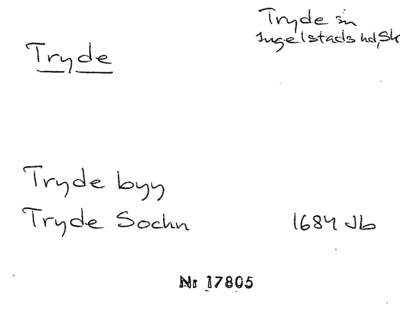 Tryde sn
Ingelstads hd, Sk
Tryde
Tryde byy
Tryde Sochn 1684 Jb
Nr 17805